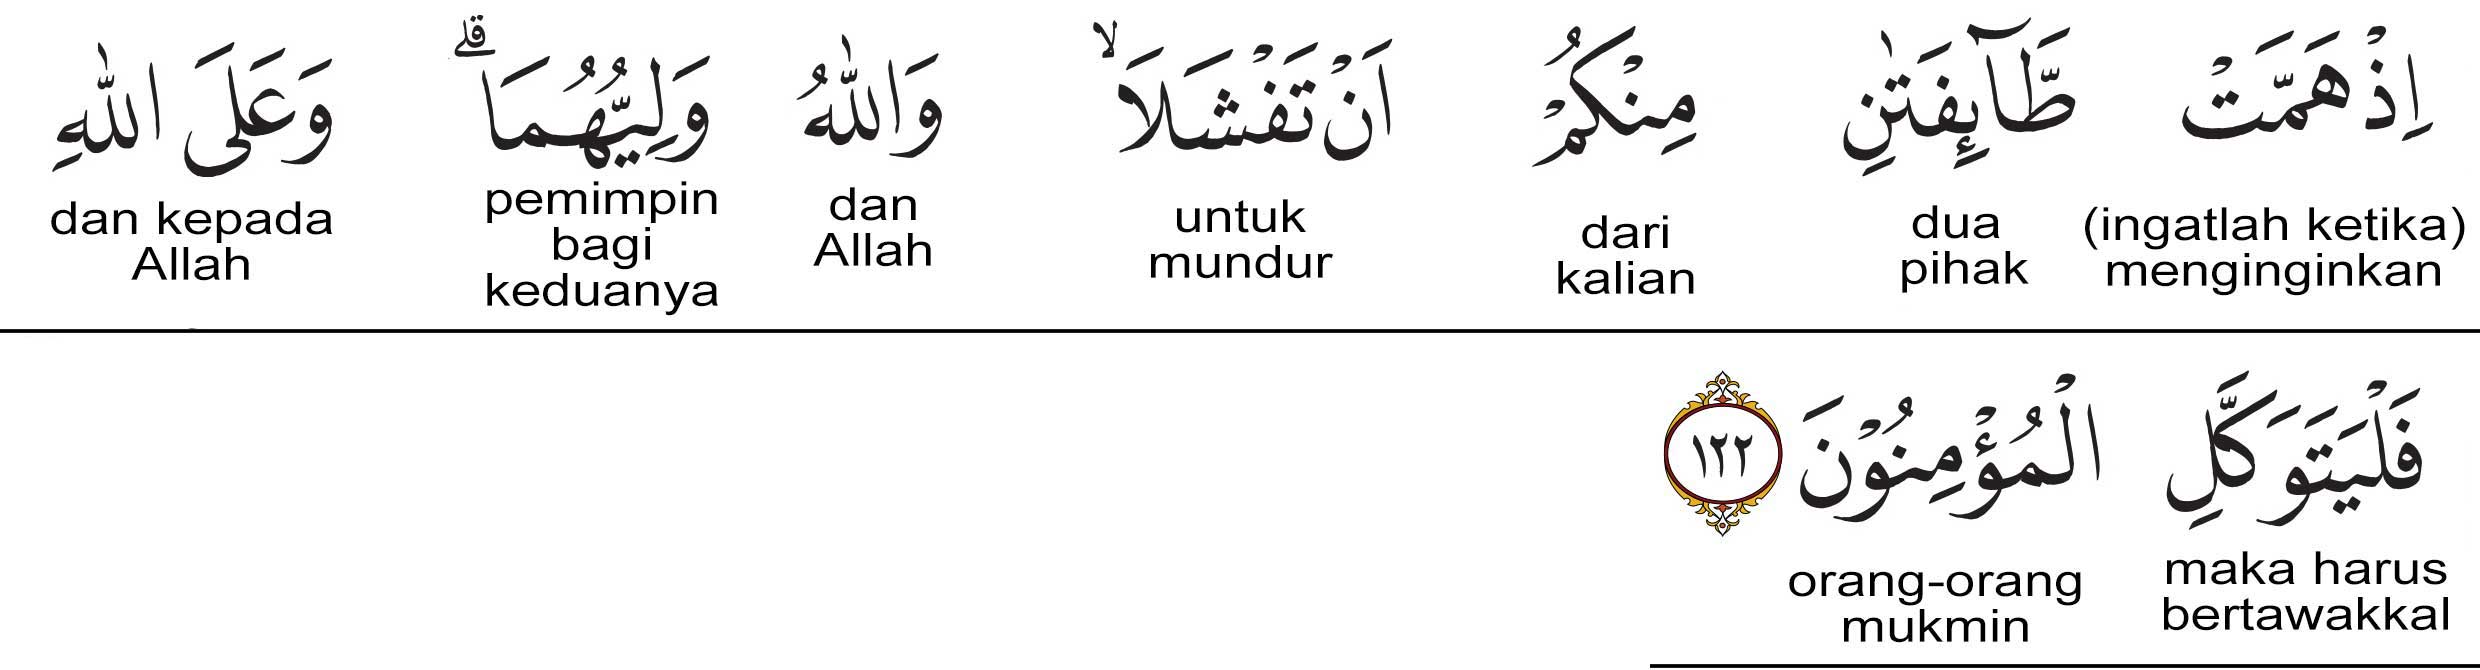 اِذْ هَمَّتْ طَّاۤىِٕفَتٰنِ مِنْكُمْ اَنْ تَفْشَلَاۙ وَاللّٰهُ وَلِيُّهُمَاۗ وَعَلَى اللّٰهِ
(ingatlah ketika) menginginkan
dua pihak
dari kalian
untuk mundur
dan Allah
pemimpin bagi keduanya
dan kepada Allah
فَلْيَتَوَكَّلِ الْمُؤْمِنُوْنَ ١٢٢
maka harus bertawakkal
orang-orang mukmin